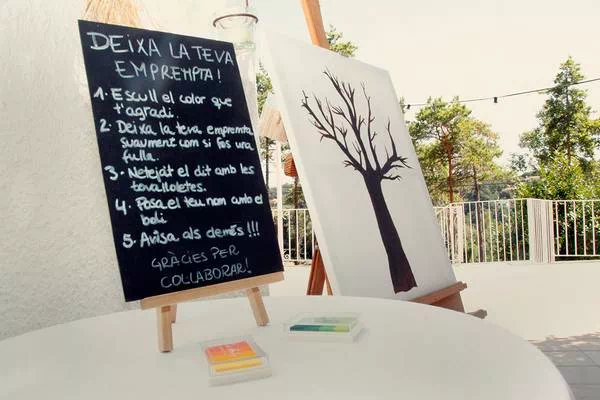 DEIXA LA TEVA
EMPREMPTA!
1. Escull el color que
t'agradi.
2. Deixa la teva empremta
suaument com si fos una
fulla.
3. Netejat el dit amb les
tovalloletes.
4. Posa el teu nom amb el
boli
5. Avisa als demés!!!
GRÀCIES PER
COL·LABORAR!